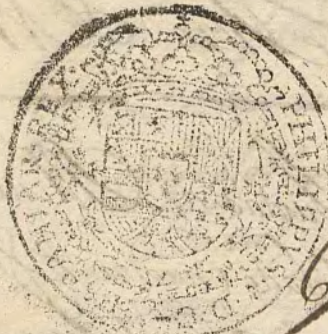 PHILIPPVS·V·D·G·
HISPANIAR·REX·
6